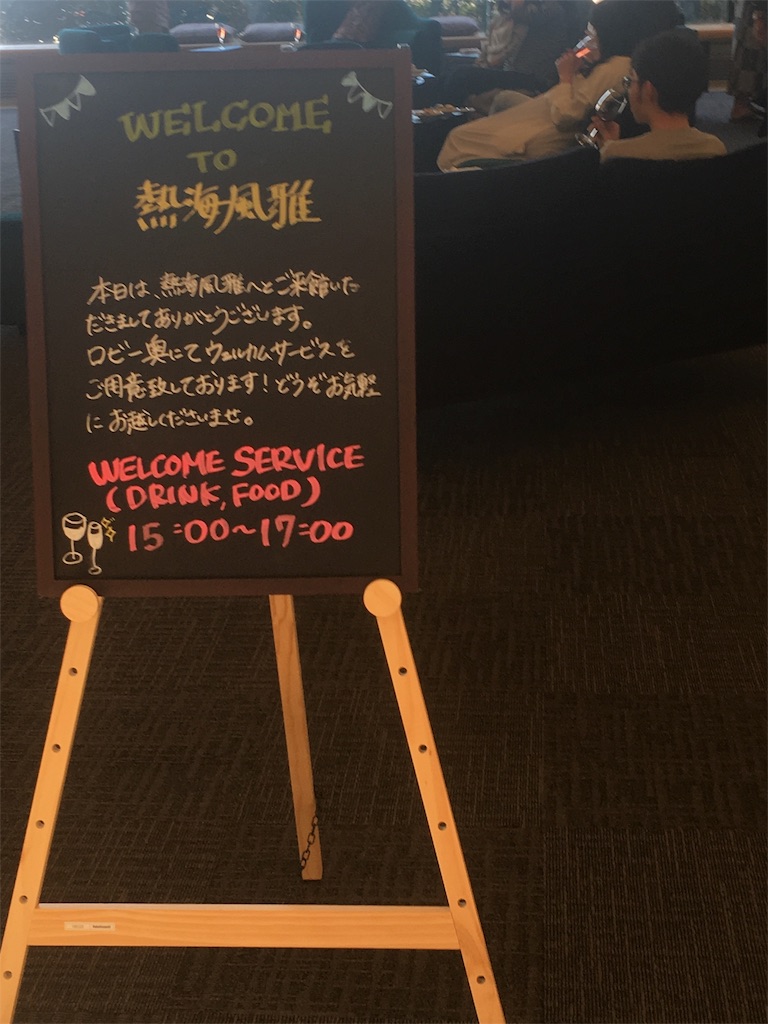 WELCOME
TO
熱海風雅
本日は、熱海風雅へとご来館いた
だきましてありがとうございます。
ロビー奥にてウェルカムサービスを
ご用意致しております！どうぞお気軽
にお越しくださいませ。
WELCOME SERVICE
(DRINK, FOOD)
15:00~17:00